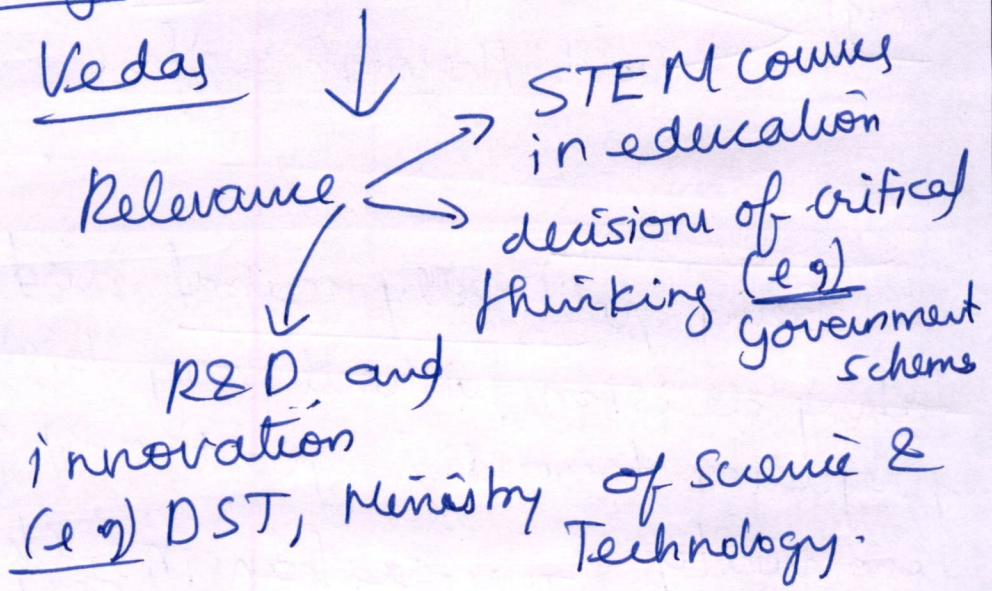 Vedas
STEM courses
in education
Relevance
decisions of critical
thinking (eg)
government
schemes
R&D and
innovation
(eg) DST, Ministry of Science &
Technology.